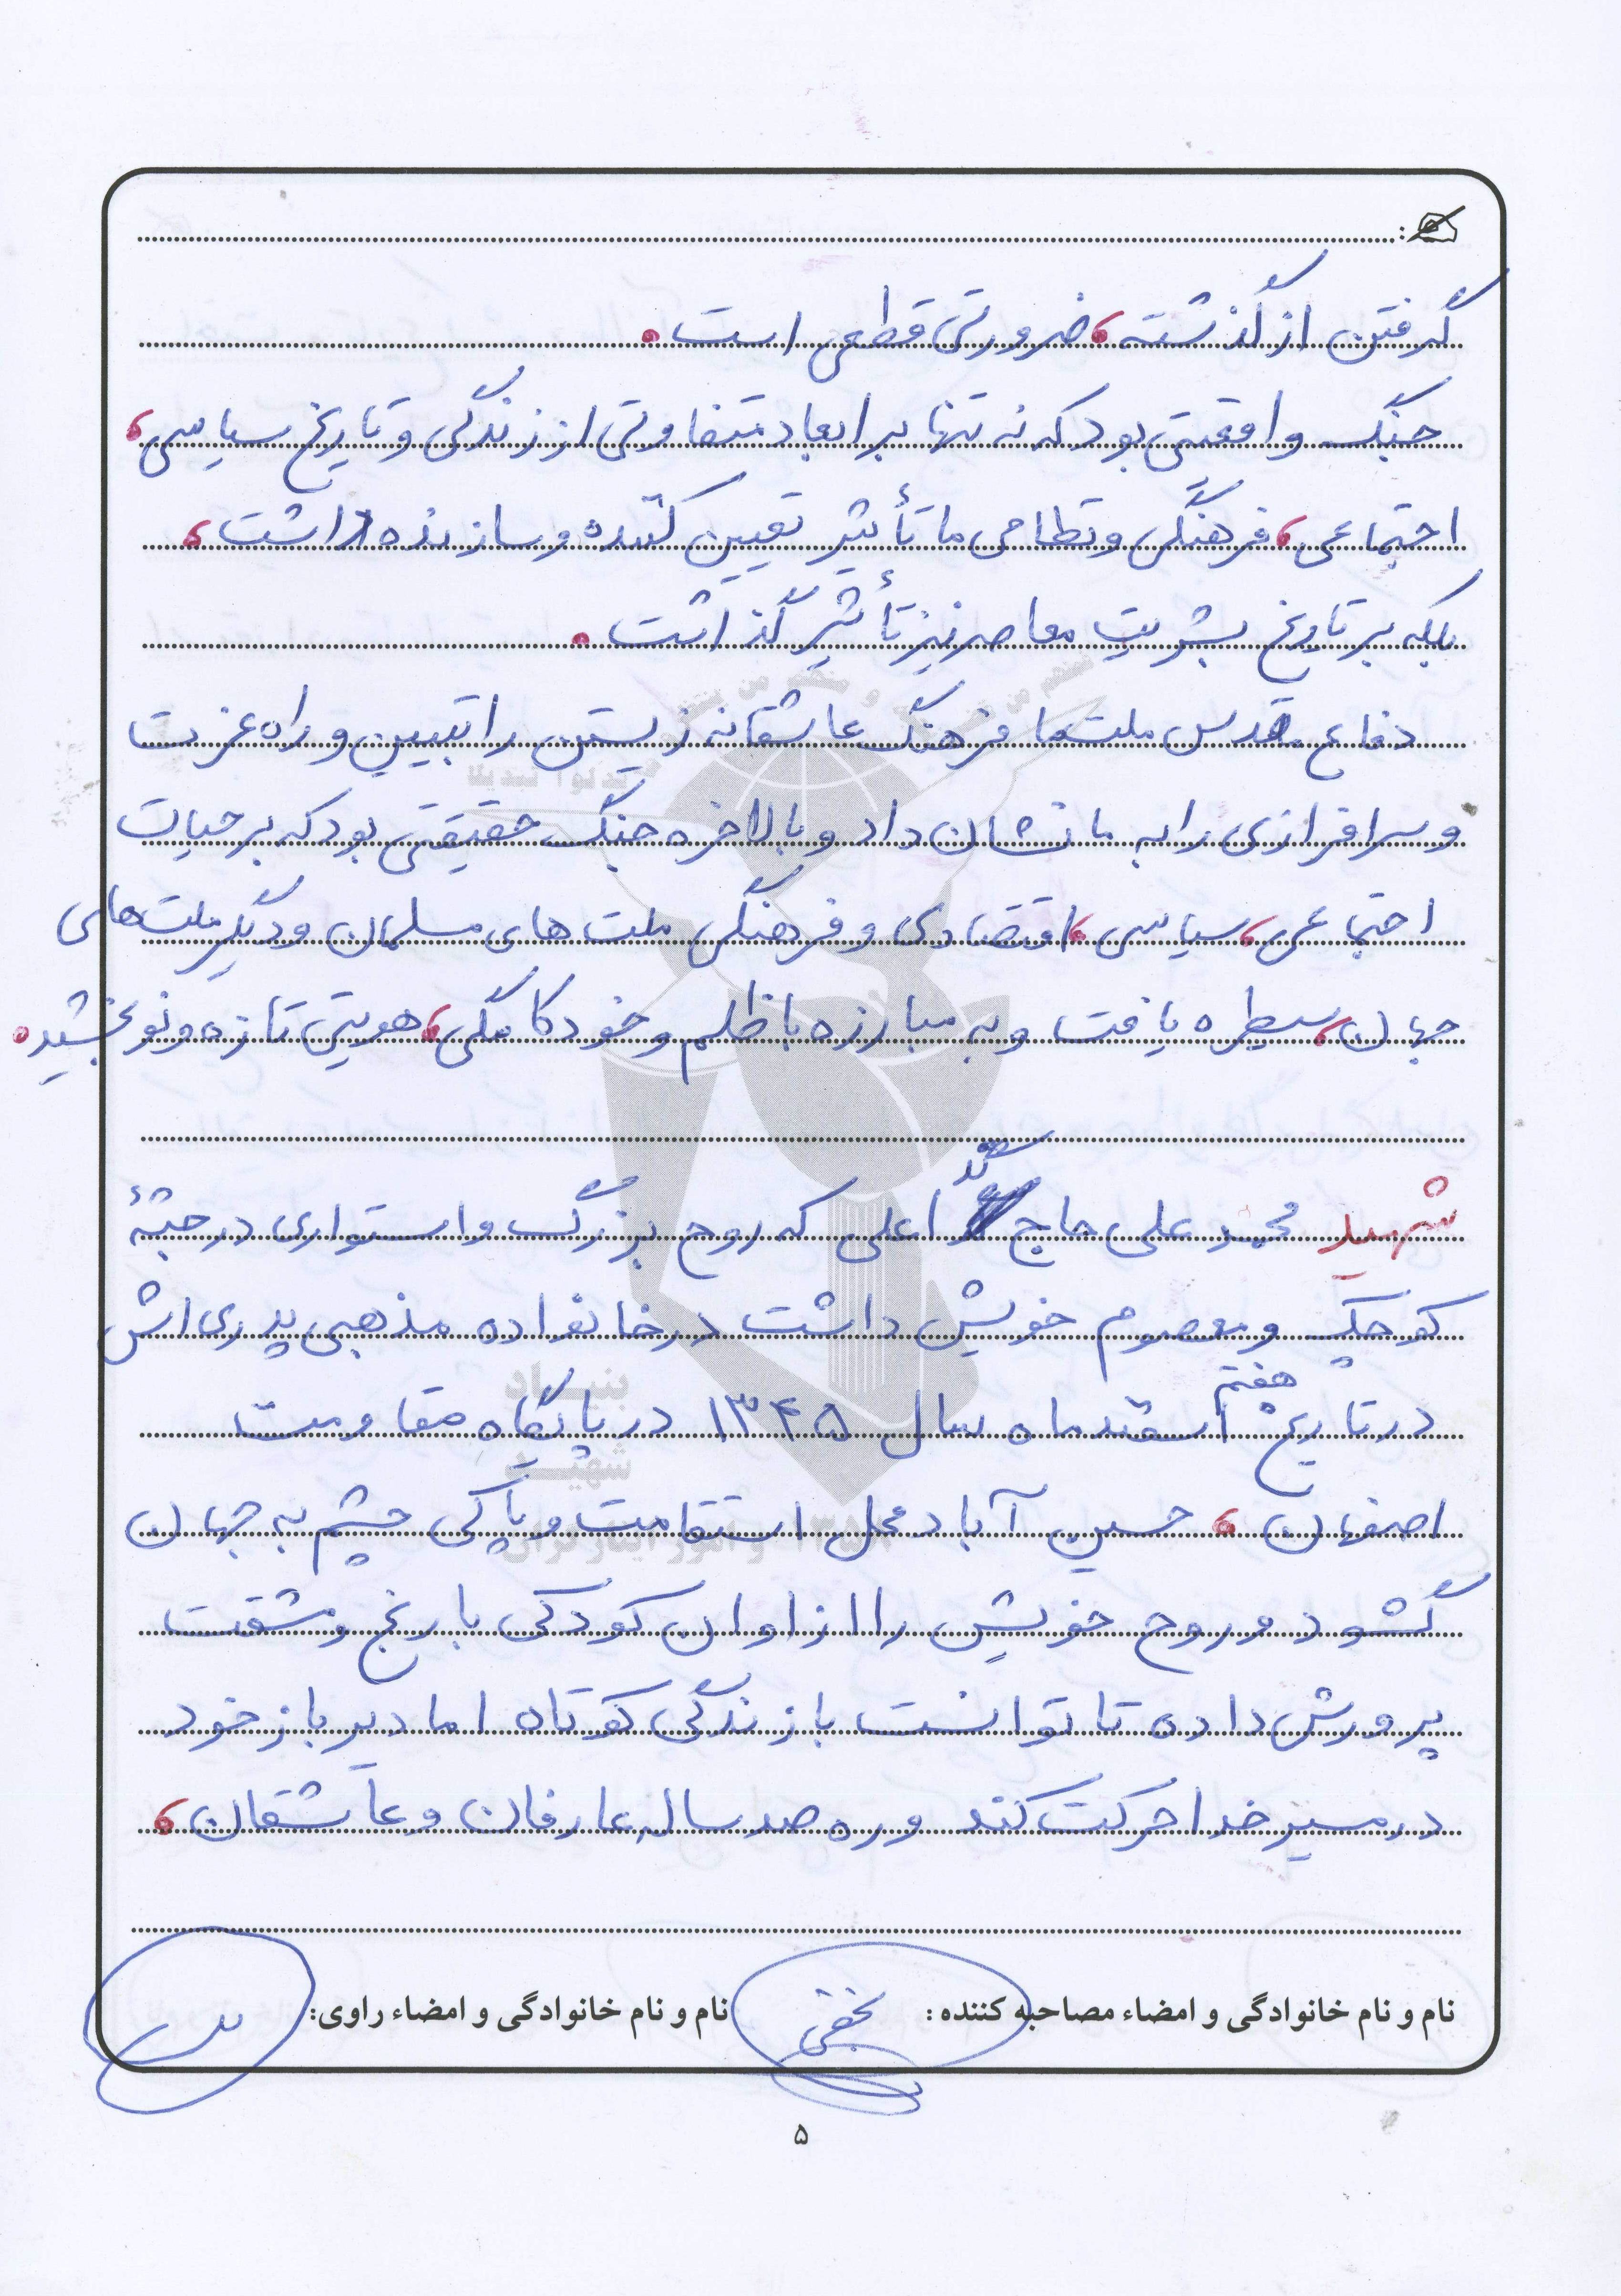 گرفتن از گذشته، ضرورتی قطعی است.
جنگ واقعتی بود که نه تنها بر ابعاد متفاوتی از زندگی و تاریخ سیاسی،
اجتماعی، فرهنگی و نظامی ما تأثیر تعیین کننده و سازنده داشت،
بلکه بر تاریخ بشریت معاصر نیز تأثیر گذاشت.
دفاع مقدس ملت ما فرهنگ عاشقانه زیستن را تبیین و راه عزت
و سرافرازی را به ما نشان داد و بالاخره جنگ حقیقتی بود که بر حیات
اجتماعی، سیاسی، اقتصادی و فرهنگی ملت های مسلمان و دیگر ملت های
جهان، سیطره یافت و به مبارزه با ظلم و خودکامگی، هویتی تازه و نو بخشید.
شهید محمد علی حاج گداعلی که روح بزرگ و استواری در جثهٔ
کوچک و معصوم خویش داشت در خانواده مذهبی پدری اش
در تاریخ هفتم اسفند ماه سال ۱۳۴۵ در پایگاه مقاومت
اصفهان، حسین آباد محل استقامت و پاکی چشم به جهان
گشود و روح خویش را از اوان کودکی با رنج و مشقت
پرورش داده تا توانست با زندگی کوتاه اما دیر باز خود
در مسیر خدا حرکت کند و ره صد ساله عارفان و عاشقان،
نام و نام خانوادگی و امضاء مصاحبه کننده: نام و نام خانوادگی و امضاء راوی:
۵